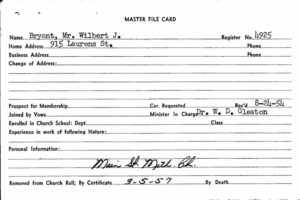 MASTER FILE CARD
Name Bryant, Mr. Wilbert J. Register No. 4925
Home Address 915 Laurens St. Phone
Business Address Phone
Change of Address:
Prospect for Membership Cer. Requested Rec'd 8-24-54
Joined by Vows Minister in Charge Dr. W. D. Gleaton
Enrolled in Church School: Dept. Class
Experience in work of following Nature:
Personal Information:
Main St. Meth. Ch.
Removed from Church Roll; By Certificate 3-5-57 By Death